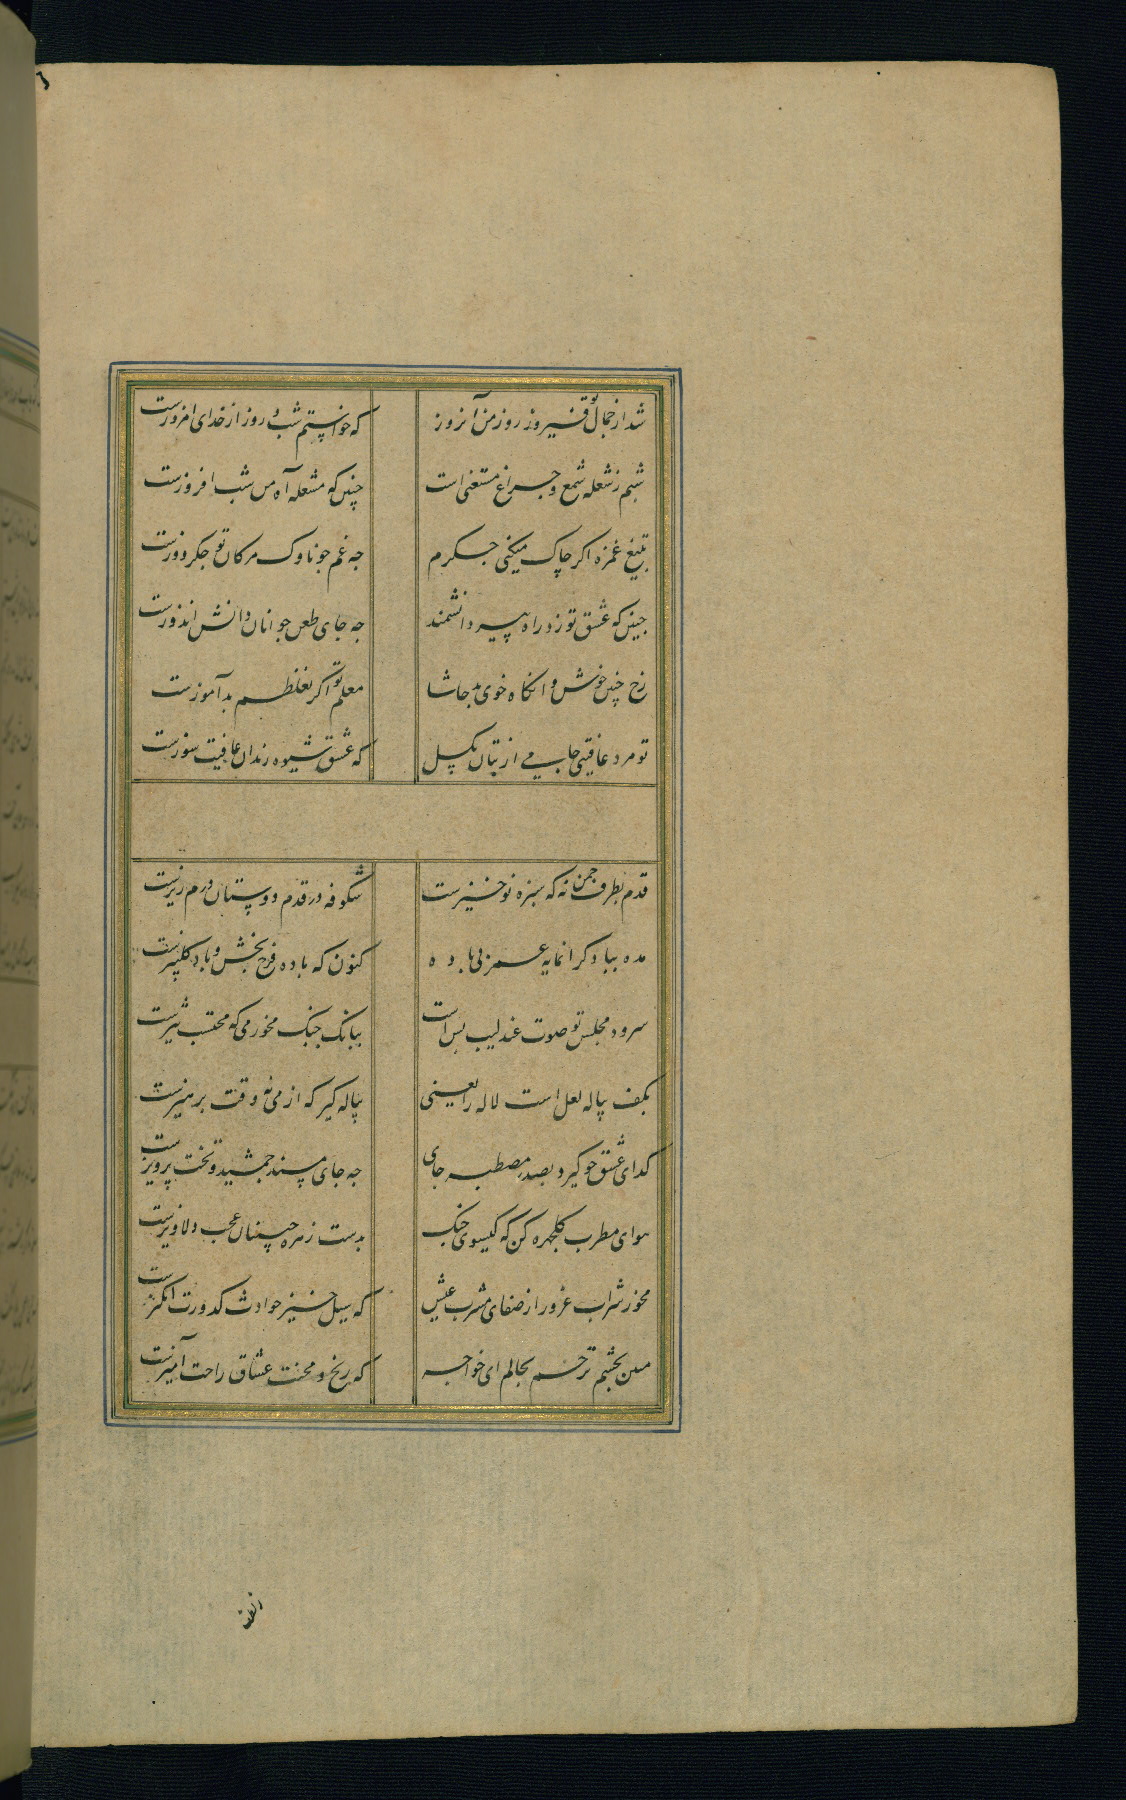 شد از جمال تو فیروز روز من آنروز که خواستم شب و روز از خدای امروزست
شبم ز شعله شمع و چراغ مستغنی است چنین که مشعله آه من شب افروزست
بتیغ غمزه اکر چاک میکنی جکرم چه غم چو ناوک مژکان تو جکردوزست
چنین که عشق تو زد راه پیر دانشمند چه جای طعن جوانان دانش اندوزست
رخ چنین خوش و آنکاه خوی بد حاشا معلم تو اکر بغلط بدآموزست
تو مرد عافیتی جامی از بتان بکسل که عشق شیوه رندان عافیت سوزست
قدم بطرف چمن نه که سبزه نوخیزست شکوفه در قدم دوستان درم ریزست
مده بباد کرانمایه عمر بی باده کنون که باده فرح بخش و باد کلبیزست
سرود مجلس تو صوت عندلیب بس است ببانک چنک مخور می که محتسب تیزست
بکف پیاله لعل است لاله را یعنی پیاله کیر که از می نه وقت پرهیزست
کدای عشق چو کیرد بصدر مصطبه جای چه جای مسند جمشید و تخت پرویزست
هوای مطرب کلچهره کن که کیسوی چنک بدست زهره جبینان عجب دلاویزست
مخور شراب غرور از صفای مشرب عیش که سیل خیز حوادث کدورت انکیزست
مبین بچشم ترحم بحالم ای خواجه که رنج و محنت عشاق راحت آمیزست